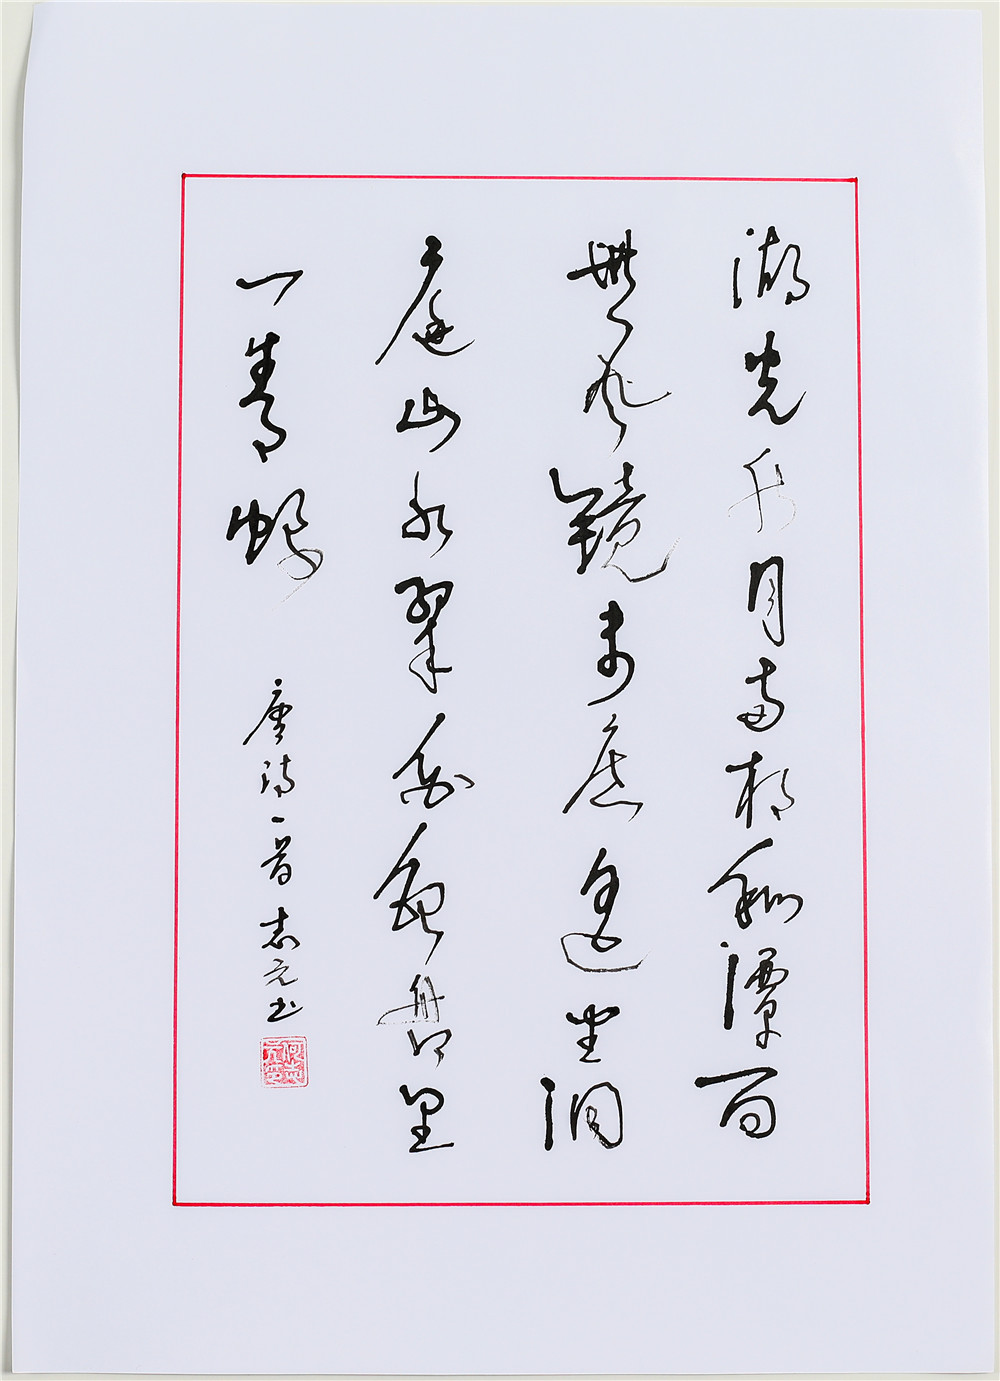 湖光秋月两相和潭面
無风鏡未磨遥望洞
庭山水翠白銀盤里
一青螺
唐诗一首 志元书